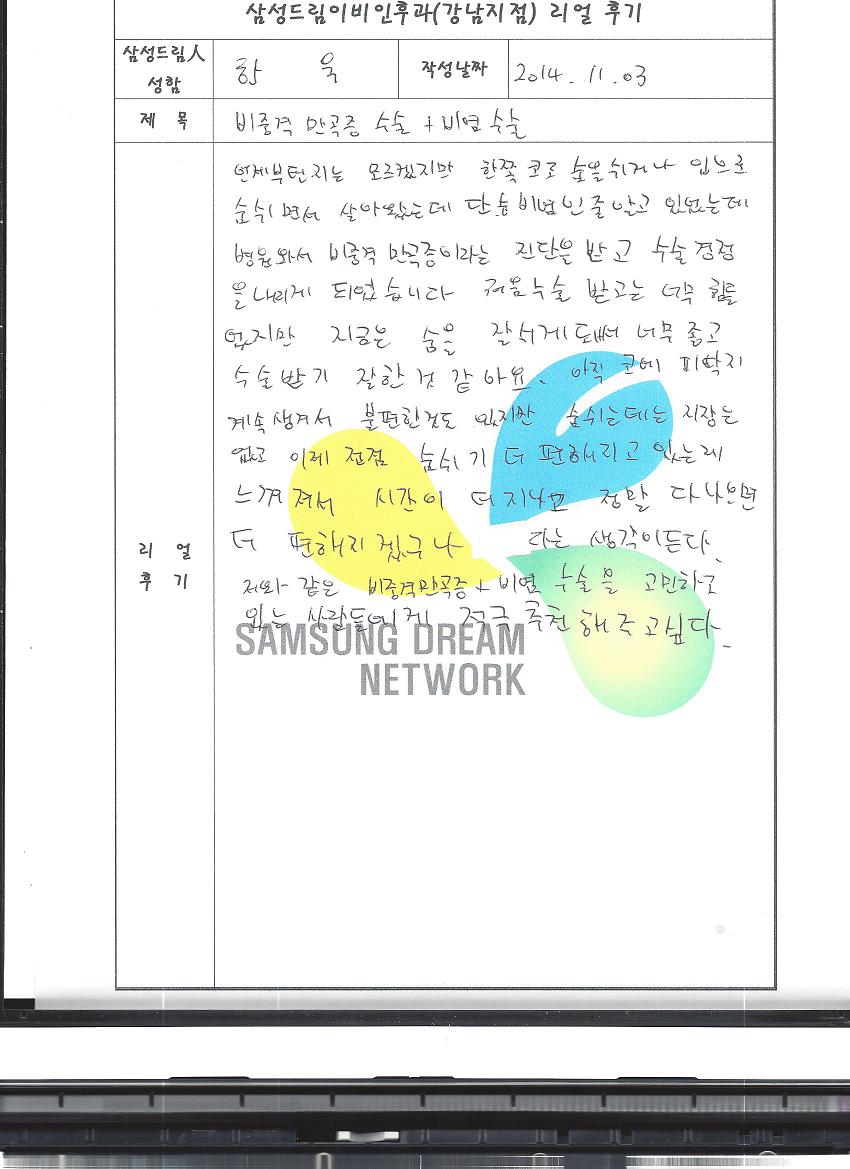 삼성드림이비인후과(강남지점) 리얼 후기
삼성드림人
성함
한 욱
작성날짜
2014. 11. 03
제 목
비중격 만곡증 수술 + 비염 수술
리 얼
후 기
언제부턴지는 모르겠지만 한쪽 코로 숨을 쉬거나 입으로
숨쉬면서 살아왔는데 단순 비염인 줄 알고 있었는데
병원와서 비중격 만곡증이라는 진단을 받고 수술 결정
을 내리게 되었습니다 처음 수술 받고는 너무 힘들
었지만 지금은 숨을 잘쉬게 돼서 너무 좋고
수술받기 잘한 것 같아요. 아직 코에 피딱지
계속생겨서 불편한것도 있지만 숨쉬는데는 지장은
없고 이제 점점 숨쉬기 더 편해지고 있는게
느껴져서 시간이 더 지나고 정말 다 나으면
더 편해지겠구나 라는 생각이든다.
저와 같은 비중격만곡증 + 비염 수술을 고민하고
있는 사람들에게 적극 추천 해주고싶다.
SAMSUNG DREAM
NETWORK